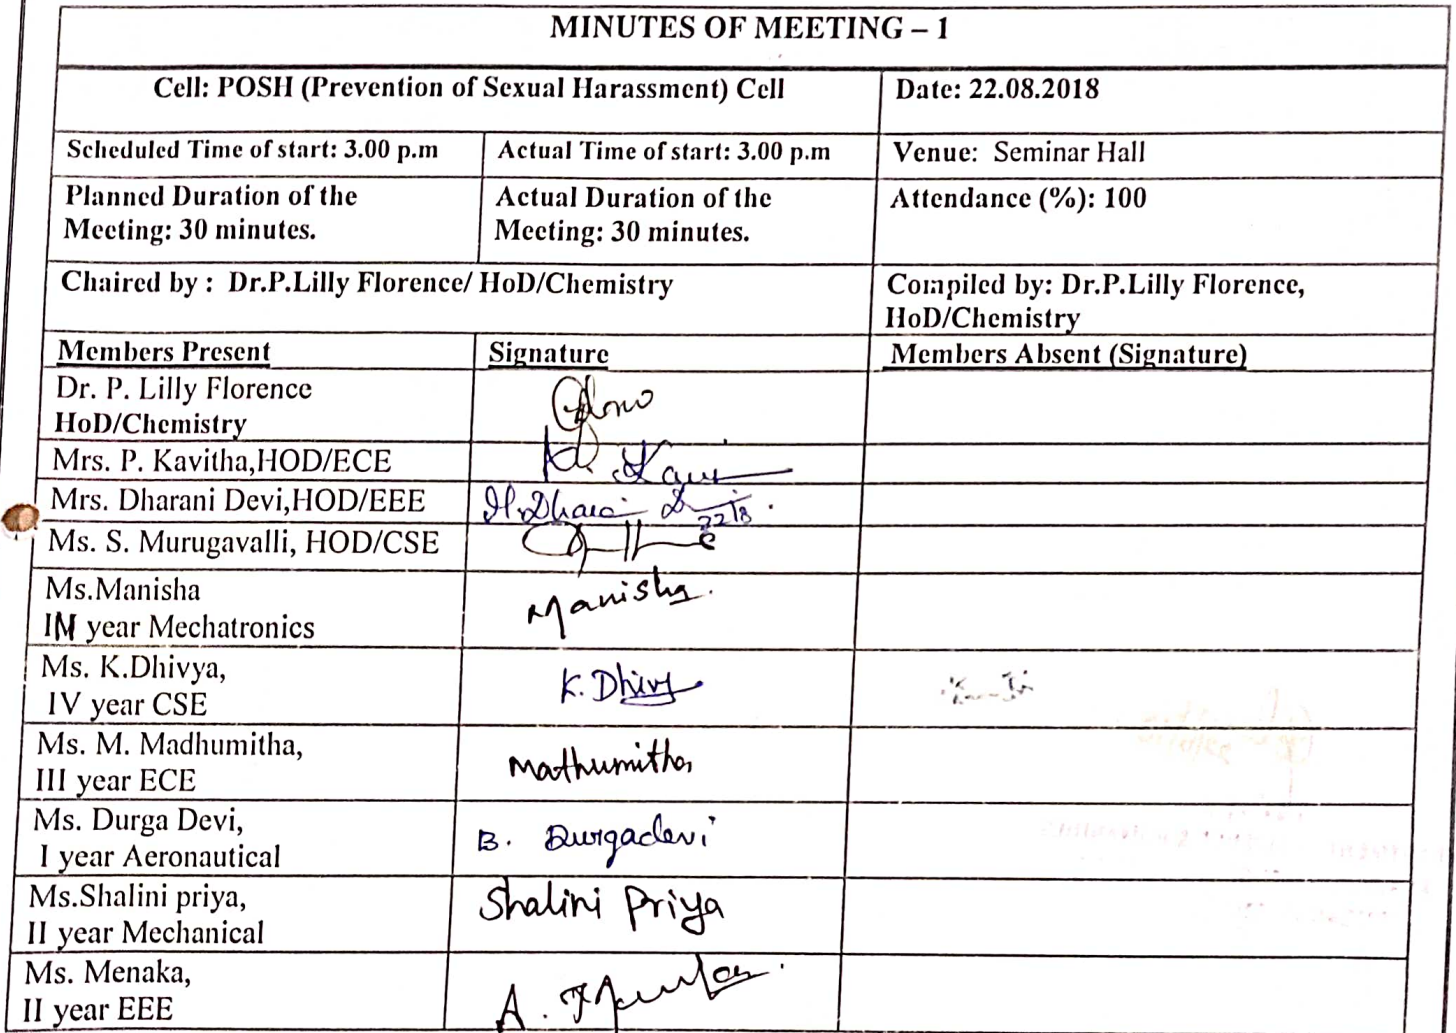 MINUTES OF MEETING – 1
Cell: POSH (Prevention of Sexual Harassment) Cell
Date: 22.08.2018
Scheduled Time of start: 3.00 p.m
Actual Time of start: 3.00 p.m
Venue: Seminar Hall
Planned Duration of the
Meeting: 30 minutes.
Actual Duration of the
Meeting: 30 minutes.
Attendance (%): 100
Chaired by : Dr.P.Lilly Florence/ HoD/Chemistry
Compiled by: Dr.P.Lilly Florence,
HoD/Chemistry
Members Present
Signature
Members Absent (Signature)
Dr. P. Lilly Florence
HoD/Chemistry
Mrs. P. Kavitha,HOD/ECE
Mrs. Dharani Devi,HOD/EEE
Ms. S. Murugavalli, HOD/CSE
Ms.Manisha
year Mechatronics
Manisha.
Ms. K.Dhivya,
IV year CSE
K. Dhivy
Ms. M. Madhumitha,
III year ECE
Mathumitha
Ms. Durga Devi,
I year Aeronautical
B. Durgadevi
Ms.Shalini priya,
II year Mechanical
Shalini Priya
Ms. Menaka,
II year EEE
A.